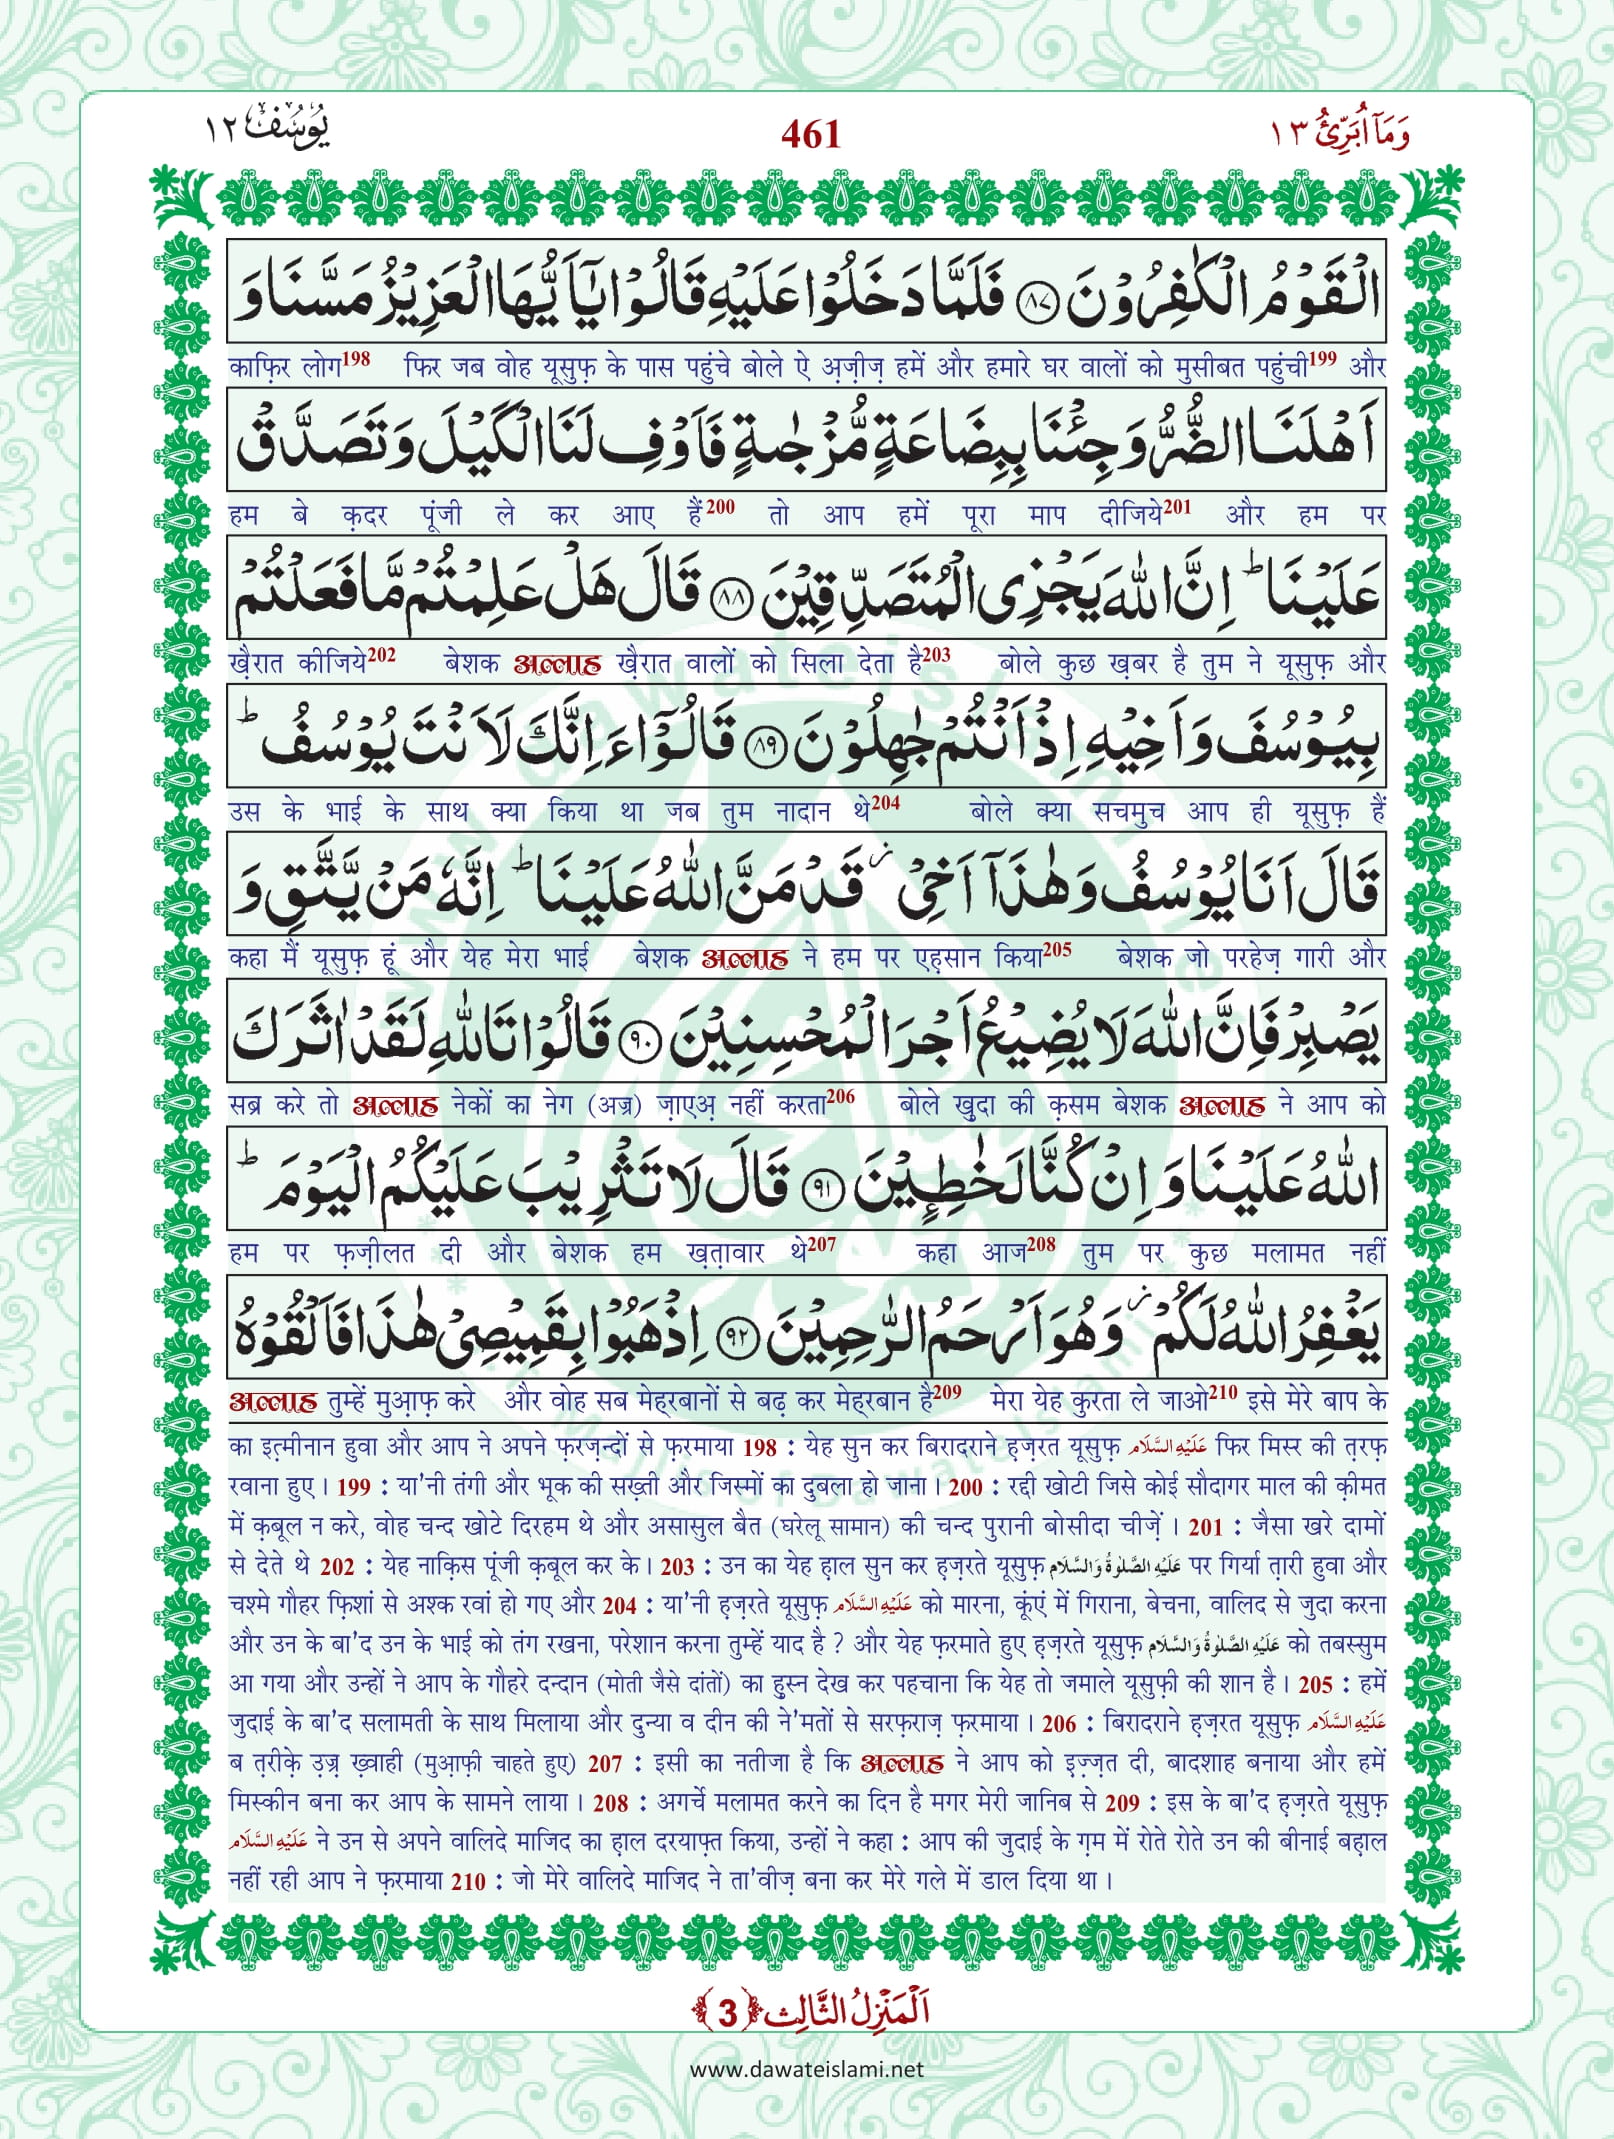 وَمَاۤ اُبَرِّئُ ١٣
461
یُوْسُف ١٢
الْقَوْمُ الْكٰفِرُوْنَ ﴿۸۷﴾ فَلَمَّا دَخَلُوْا عَلَیْهِ قَالُوْا یٰۤاَیُّهَا الْعَزِیْزُ مَسَّنَا وَ
काफ़िर लोग198 फिर जब वोह यूसुफ़ के पास पहुंचे बोले ऐ अ़ज़ीज़ हमें और हमारे घर वालों को मुसीबत पहुंची199 और
اَهْلَنَا الضُّرُّ وَ جِئْنَا بِبِضَاعَةٍ مُّزْجٰىةٍ فَاَوْفِ لَنَا الْكَیْلَ وَ تَصَدَّقْ
हम बे क़दर पूंजी ले कर आए हैं200 तो आप हमें पूरा माप दीजिये201 और हम पर
عَلَیْنَاؕ اِنَّ اللّٰهَ یَجْزِی الْمُتَصَدِّقِیْنَ ﴿۸۸﴾ قَالَ هَلْ عَلِمْتُمْ مَّا فَعَلْتُمْ
ख़ैरात कीजिये202 बेशक अल्लाह ख़ैरात वालों को सिला देता है203 बोले कुछ ख़बर है तुम ने यूसुफ़ और
بِیُوْسُفَ وَ اَخِیْهِ اِذْ اَنْتُمْ جٰهِلُوْنَ ﴿۸۹﴾ قَالُوْۤا ءَاِنَّكَ لَاَنْتَ یُوْسُفُؕ
उस के भाई के साथ क्या किया था जब तुम नादान थे204 बोले क्या सचमुच आप ही यूसुफ़ हैं
قَالَ اَنَا یُوْسُفُ وَ هٰذَاۤ اَخِیْ٘ قَدْ مَنَّ اللّٰهُ عَلَیْنَاؕ اِنَّهٗ مَنْ یَّتَّقِ وَ
कहा मैं यूसुफ़ हूं और येह मेरा भाई बेशक अल्लाह ने हम पर एह़सान किया205 बेशक जो परहेज़ गारी और
یَصْبِرْ فَاِنَّ اللّٰهَ لَا یُضِیْعُ اَجْرَ الْمُحْسِنِیْنَ ﴿۹۰﴾ قَالُوْا تَاللّٰهِ لَقَدْ اٰثَرَكَ
सब्र करे तो अल्लाह नेकों का नेग (अज्र) ज़ाएअ़ नहीं करता206 बोले खुदा की क़सम बेशक अल्लाह ने आप को
اللّٰهُ عَلَیْنَا وَ اِنْ كُنَّا لَخٰطِـٕیْنَ ﴿۹۱﴾ قَالَ لَا تَثْرِیْبَ عَلَیْكُمُ الْیَوْمَؕ
हम पर फ़ज़ीलत दी और बेशक हम ख़त़ावार थे207 कहा आज208 तुम पर कुछ मलामत नहीं
یَغْفِرُ اللّٰهُ لَكُمْ٘ وَ هُوَ اَرْحَمُ الرّٰحِمِیْنَ ﴿۹۲﴾ اِذْهَبُوْا بِقَمِیْصِیْ هٰذَا فَاَلْقُوْهُ
अल्लाह तुम्हें मुआ़फ़ करे और वोह सब मेह्रबानों से बढ़ कर मेह्रबान है209 मेरा येह कुरता ले जाओ210 इसे मेरे बाप के
का इत़्मीनान हुवा और आप ने अपने फ़रज़न्दों से फ़रमाया 198 : येह सुन कर बिरादराने ह़ज़रत यूसुफ़ عَلَیْهِ السَّلَام फिर मिस्र की त़रफ़
रवाना हुए। 199 : या'नी तंगी और भूक की सख़्ती और जिस्मों का दुबला हो जाना। 200 : रद्दी खोटी जिसे कोई सौदागर माल की क़ीमत
में क़बूल न करे, वोह चन्द खोटे दिरहम थे और असासुल बैत (घरेलू सामान) की चन्द पुरानी बोसीदा चीज़ें। 201 : जैसा खरे दामों
से देते थे 202 : येह नाक़िस पूंजी क़बूल कर के। 203 : उन का येह ह़ाल सुन कर ह़ज़रते यूसुफ़ عَلَیْهِ الصَّلٰوةُ وَالسَّلَام पर गिर्या त़ारी हुवा और
चश्मे गौहर फ़िशां से अश्क रवां हो गए और 204 : या'नी ह़ज़रते यूसुफ़ عَلَیْهِ السَّلَام को मारना, कूंएं में गिराना, बेचना, वालिद से जुदा करना
और उन के बा'द उन के भाई को तंग रखना, परेशान करना तुम्हें याद है ? और येह फ़रमाते हुए ह़ज़रते यूसुफ़ عَلَیْهِ الصَّلٰوةُ وَالسَّلَام को तबस्सुम
आ गया और उन्हों ने आप के गौहरे दन्दान (मोती जैसे दांतों) का हुस्न देख कर पहचाना कि येह तो जमाले यूसुफ़ी की शान है। 205 : हमें
जुदाई के बा'द सलामती के साथ मिलाया और दुन्या व दीन की ने'मतों से सरफ़राज़ फ़रमाया। 206 : बिरादराने ह़ज़रत यूसुफ़ عَلَیْهِ السَّلَام
ब त़रीके़ उ़ज़्र ख़्वाही (मुआ़फ़ी चाहते हुए) 207 : इसी का नतीजा है कि अल्लाह ने आप को इ़ज़्ज़त दी, बादशाह बनाया और हमें
मिस्कीन बना कर आप के सामने लाया। 208 : अगर्चे मलामत करने का दिन है मगर मेरी जानिब से 209 : इस के बा'द ह़ज़रते यूसुफ़
عَلَیْهِ السَّلَام ने उन से अपने वालिदे माजिद का ह़ाल दरयाफ़्त किया, उन्हों ने कहा : आप की जुदाई के ग़म में रोते रोते उन की बीनाई बह़ाल
नहीं रही आप ने फ़रमाया 210 : जो मेरे वालिदे माजिद ने ता'वीज़ बना कर मेरे गले में डाल दिया था।
اَلْمَنْزِلُ الثَّالِث ﴿3﴾
www.dawateislami.net